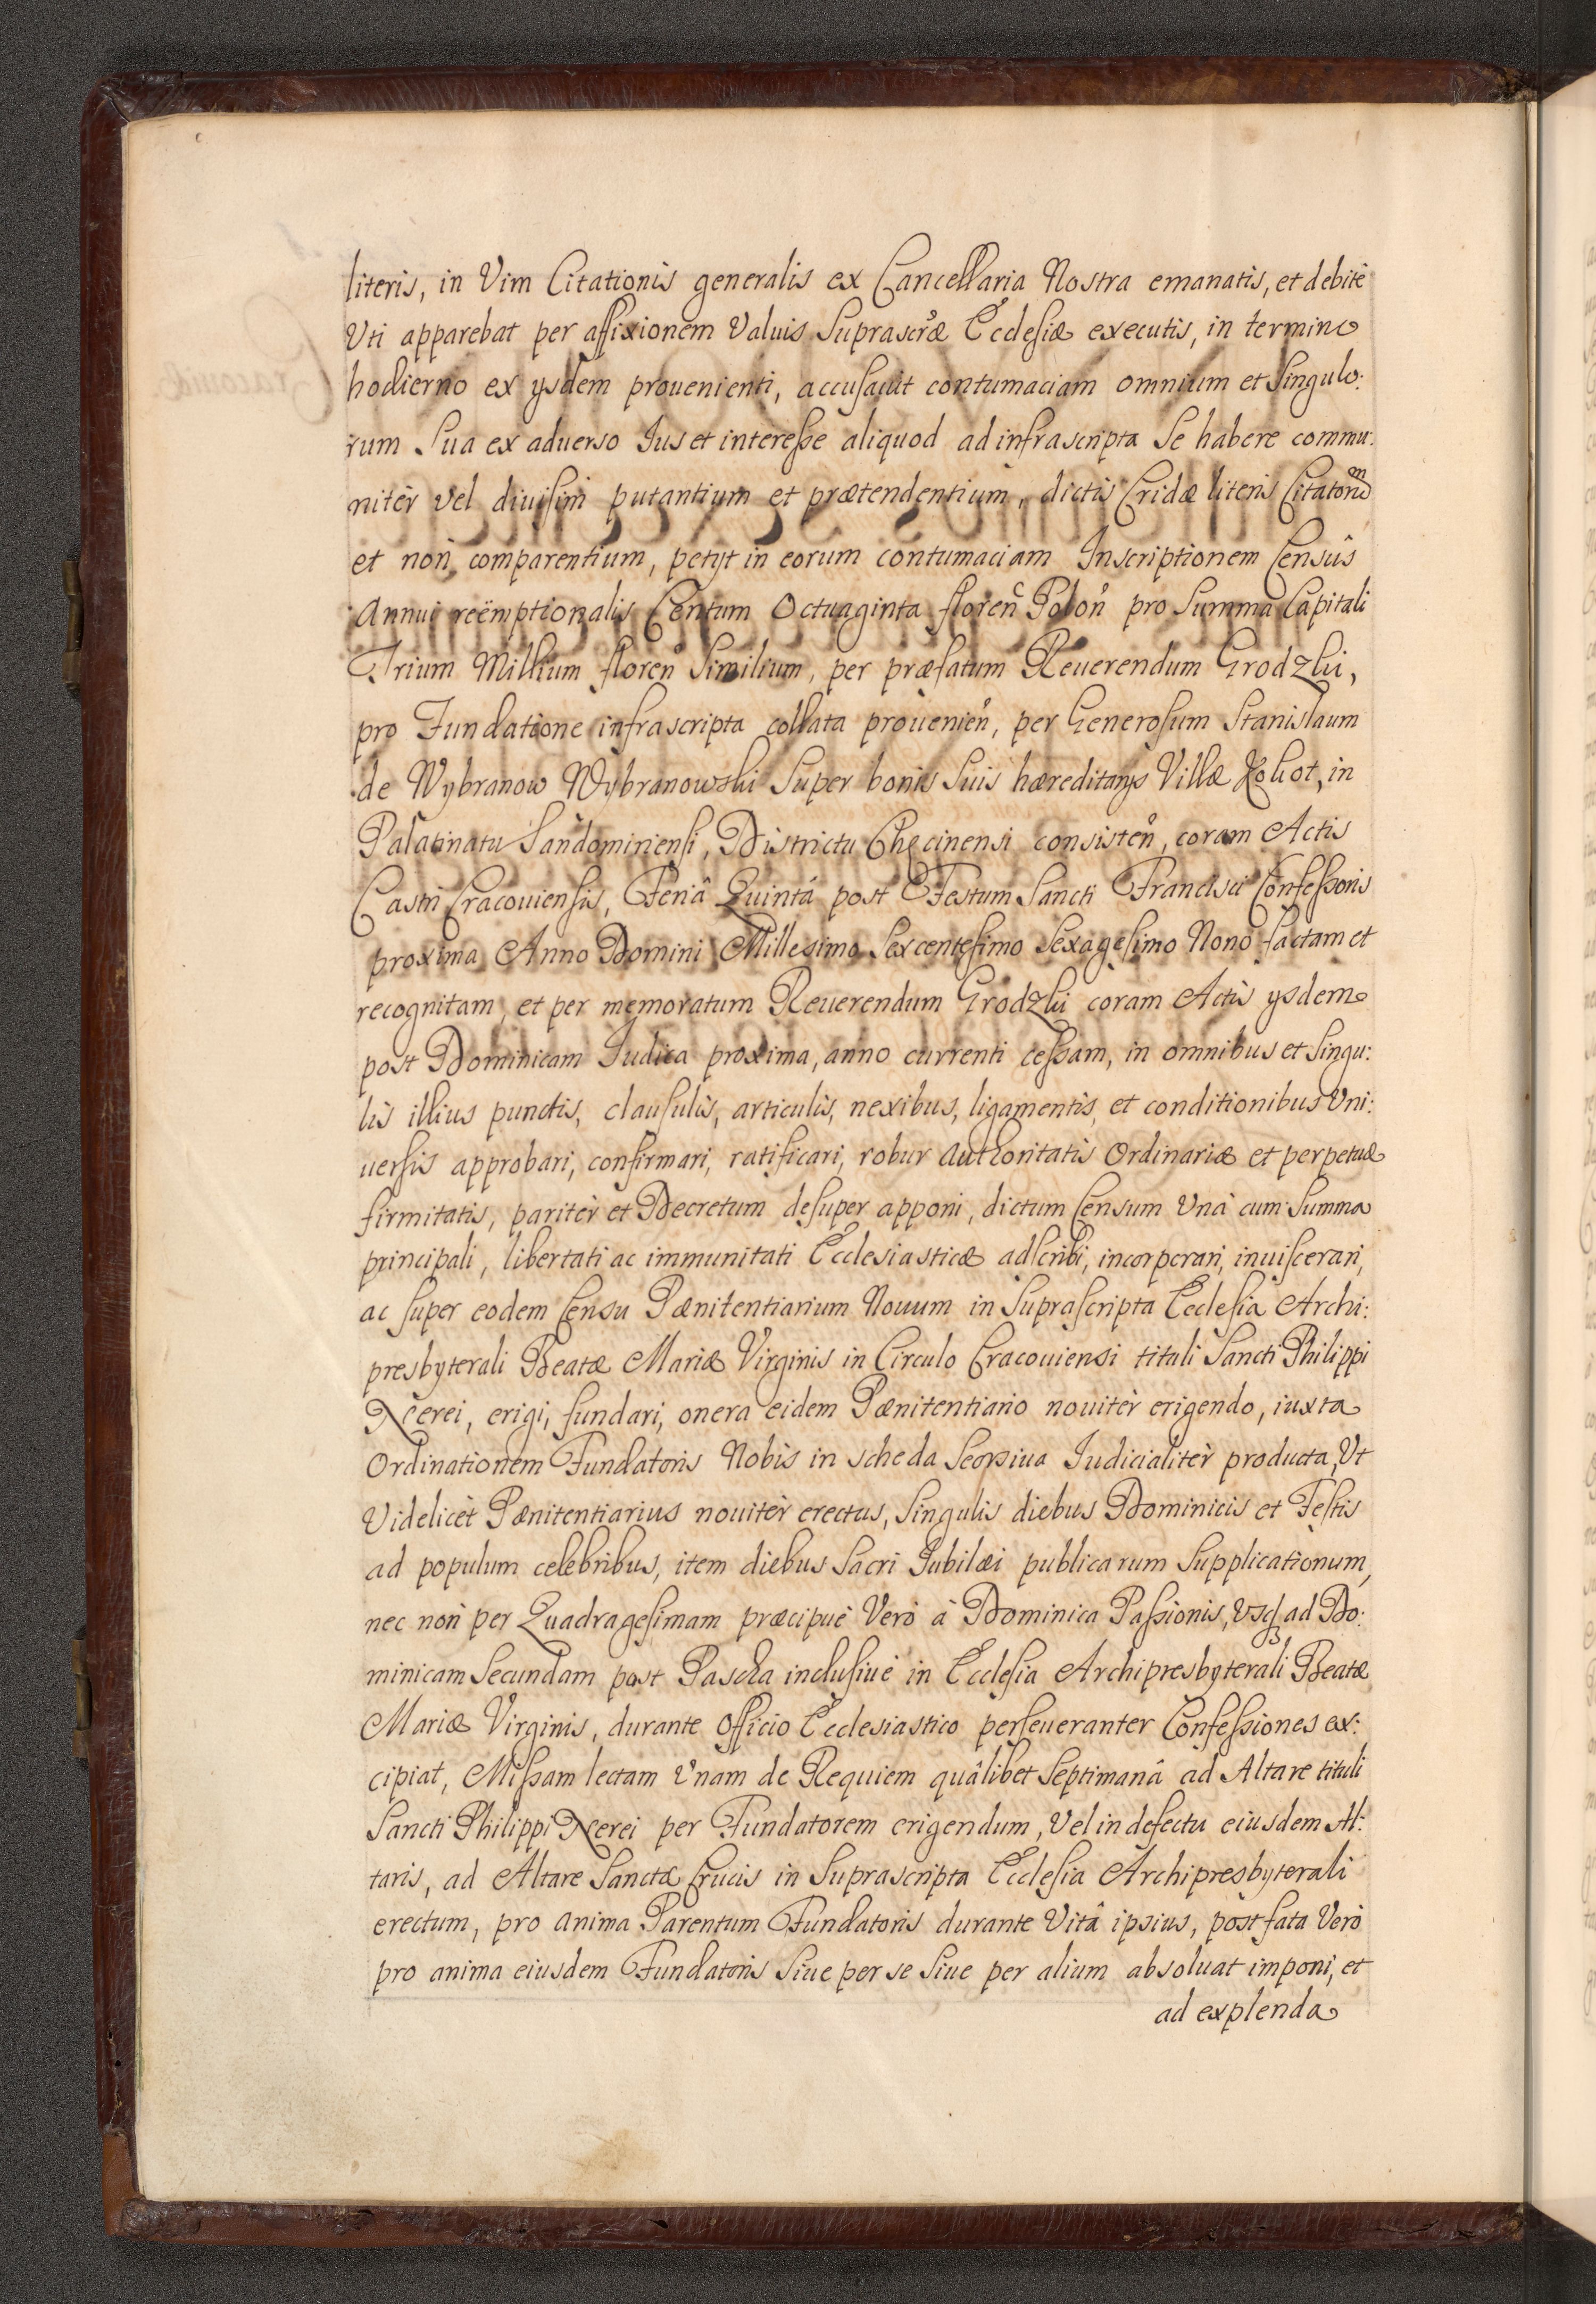 literis, in Vim Citationis generalis ex Cancellaria Nostra emanatis, et debitè
Vti apparebat per affixionem Valuis Suprascr̃æ Ecclesiæ executis, in termino
hodierno ex ijsdem prouenienti, accusauit contumaciam omnium et Singulo:
rum Sua ex aduerso Ius et interesse aliquod ad infrascripta Se habere commu:
nitèr vel diuisim putantium et prætendentium, dictis Cridæ literis Citatorũ
et non comparentium, petijt in eorum contumaciam Inscriptionem Censûs
Annui reëmptionalis Centum Octuaginta floreñ Poloñ pro Summa Capitali
Trium Millium floreñ Similium, per præfatum Reuerendum Grodzki,
pro Fundatione infrascripta collata prouenieñ, per Generosum Stanislaum
de Wybranow Wybranowski Super bonis Suis hæreditarijs Villæ in
Palatinatu Sandomiriensi, Districtu Chęcinensi consisteñ, coram Actis
Castri Cracouiensis, Feriâ Quintâ post Festum Sancti Francisci Confessoris
proxima Anno Domini Millesimo Sexcentesimo Sexagesimo Nono factam et
recognitam, et per memoratum Reuerendum Grodzki coram Actis ijsdem
post Dominicam Iudica proxima, anno currenti cessam, in omnibus et Singu:
lis illius punctis, clausulis, articulis, nexibus, ligamentis, et conditionibus Vni:
uersis approbari, confirmari, ratificari, robur Authoritatis Ordinariæ et perpetuæ
firmitatis, paritèr et Decretum desuper apponi, dictum Censum Vnà cum Summa
principali, libertati ac immunitati Ecclesiasticæ adscribi, incorporari, inuiscerari,
ac super eodem Censu Pænitentiarium Nouum in Suprascripta Ecclesia Archi:
presbyterali Beatæ Mariæ Virginis in Circulo Cracouiensi tituli Sancti Philippi
Nerei, erigi, fundari, onera eidem Pænitentiario nouitèr erigendo, iuxta
Ordinationem Fundatoris Nobis in scheda Seorsiua Iudicialitèr producta, Vt
Videlicèt Pænitentiarius nouitèr erectus, Singulis diebus Dominicis et Festis
ad populum celebribus, item diebus Sacri Iubilæi publicarum Supplicationum,
nec non per Quadragesimam præcipuè Verò à Dominica Passionis, Vsq; ad Do:
minicam Secundam post Pascha inclusiuè in Ecclesia Archipresbyterali Beatæ
Mariæ Virginis, durante Officio Ecclesiastico perseueranter Confessiones ex:
cipiat, Missam lectam Vnam de Requiem quâlibet Septimanâ ad Altare tituli
Sancti Philippi Nerei per Fundatorem erigendum, Vel in defectu eiusdem Al:
taris, ad Altare Sanctæ Crucis in Suprascripta Ecclesia Archipresbyterali
erectum, pro anima Parentum Fundatoris durante Vitâ ipsius, post fata Verò
pro anima eiusdem Fundatoris Siue per se Siue per alium absoluat imponi, et
ad explenda